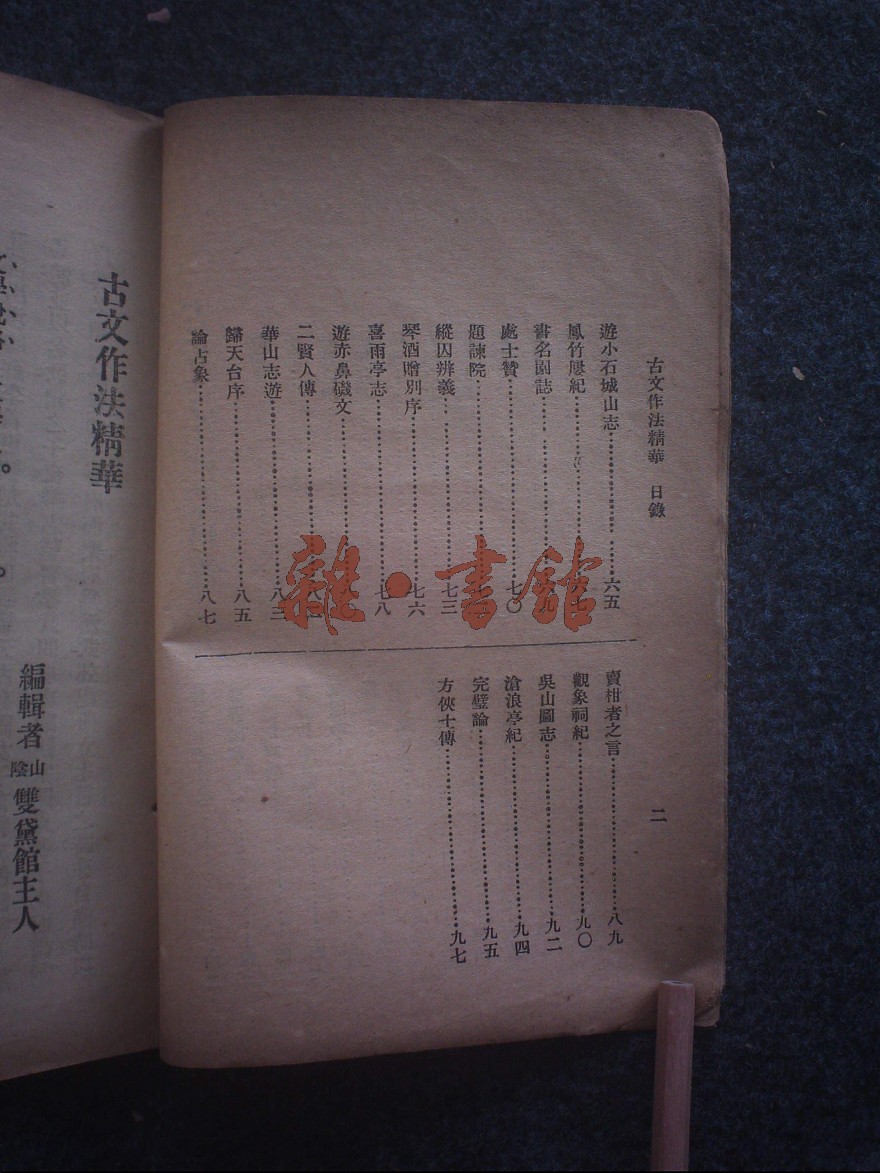 古文作法精華　目錄
遊小石城山志……六五
鳳竹屢紀……
書名園誌……
處士贊……七〇
題諫院……
縱囚辨義……七三
琴酒贈別序……七六
喜雨亭志……七八
遊赤鼻磯文……
二賢人傳……
華山志遊……八三
歸天台序……八五
論占象……八七
賣柑者之言……八九
觀象祠紀……九〇
吳山圖志……九二
滄浪亭紀……九四
完璧論……九五
方俠士傳……九七
二
古文作法精華
編輯者 山陰 雙黛館主人
雜·書館